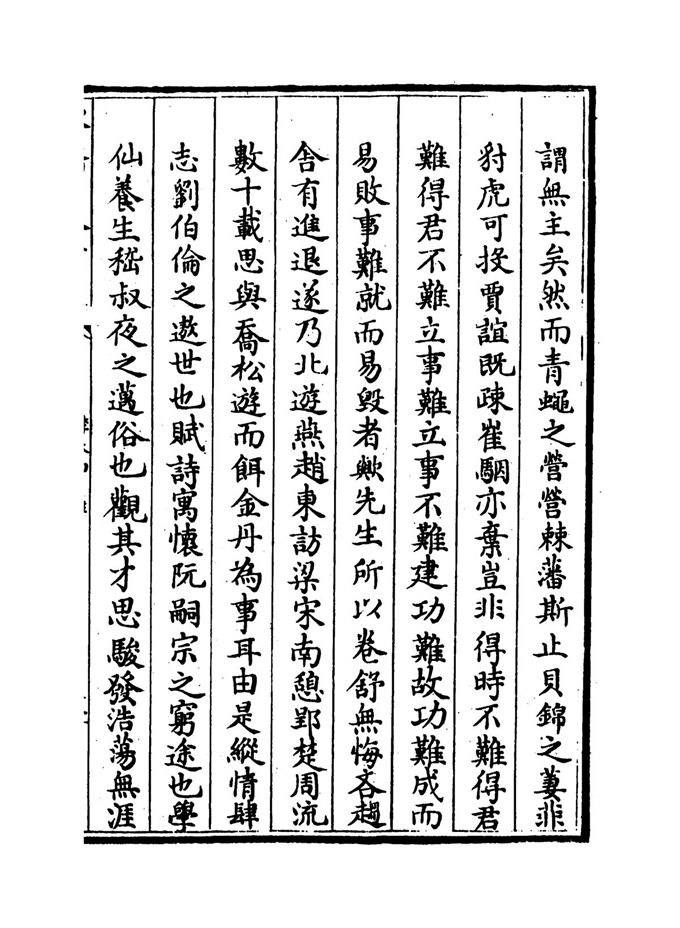 謂無主矣然而青蠅之營營棘藩斯止貝錦之萋非
豺虎可投賈誼既疎崔駰亦棄豈非得時不難得君
難得君不難立事難立事不難建功難故功難成而
易敗事難就而易毀者歟先生所以卷舒無悔吝趨
舍有進退遂乃北遊燕趙東訪梁宋南憩郢楚周流
數十載思與喬松遊而餌金丹為事耳由是縱情肆
志劉伯倫之遨世也賦詩寓懷阮嗣宗之窮途也學
仙養生嵇叔夜之邁俗也觀其才思駿發浩蕩無涯